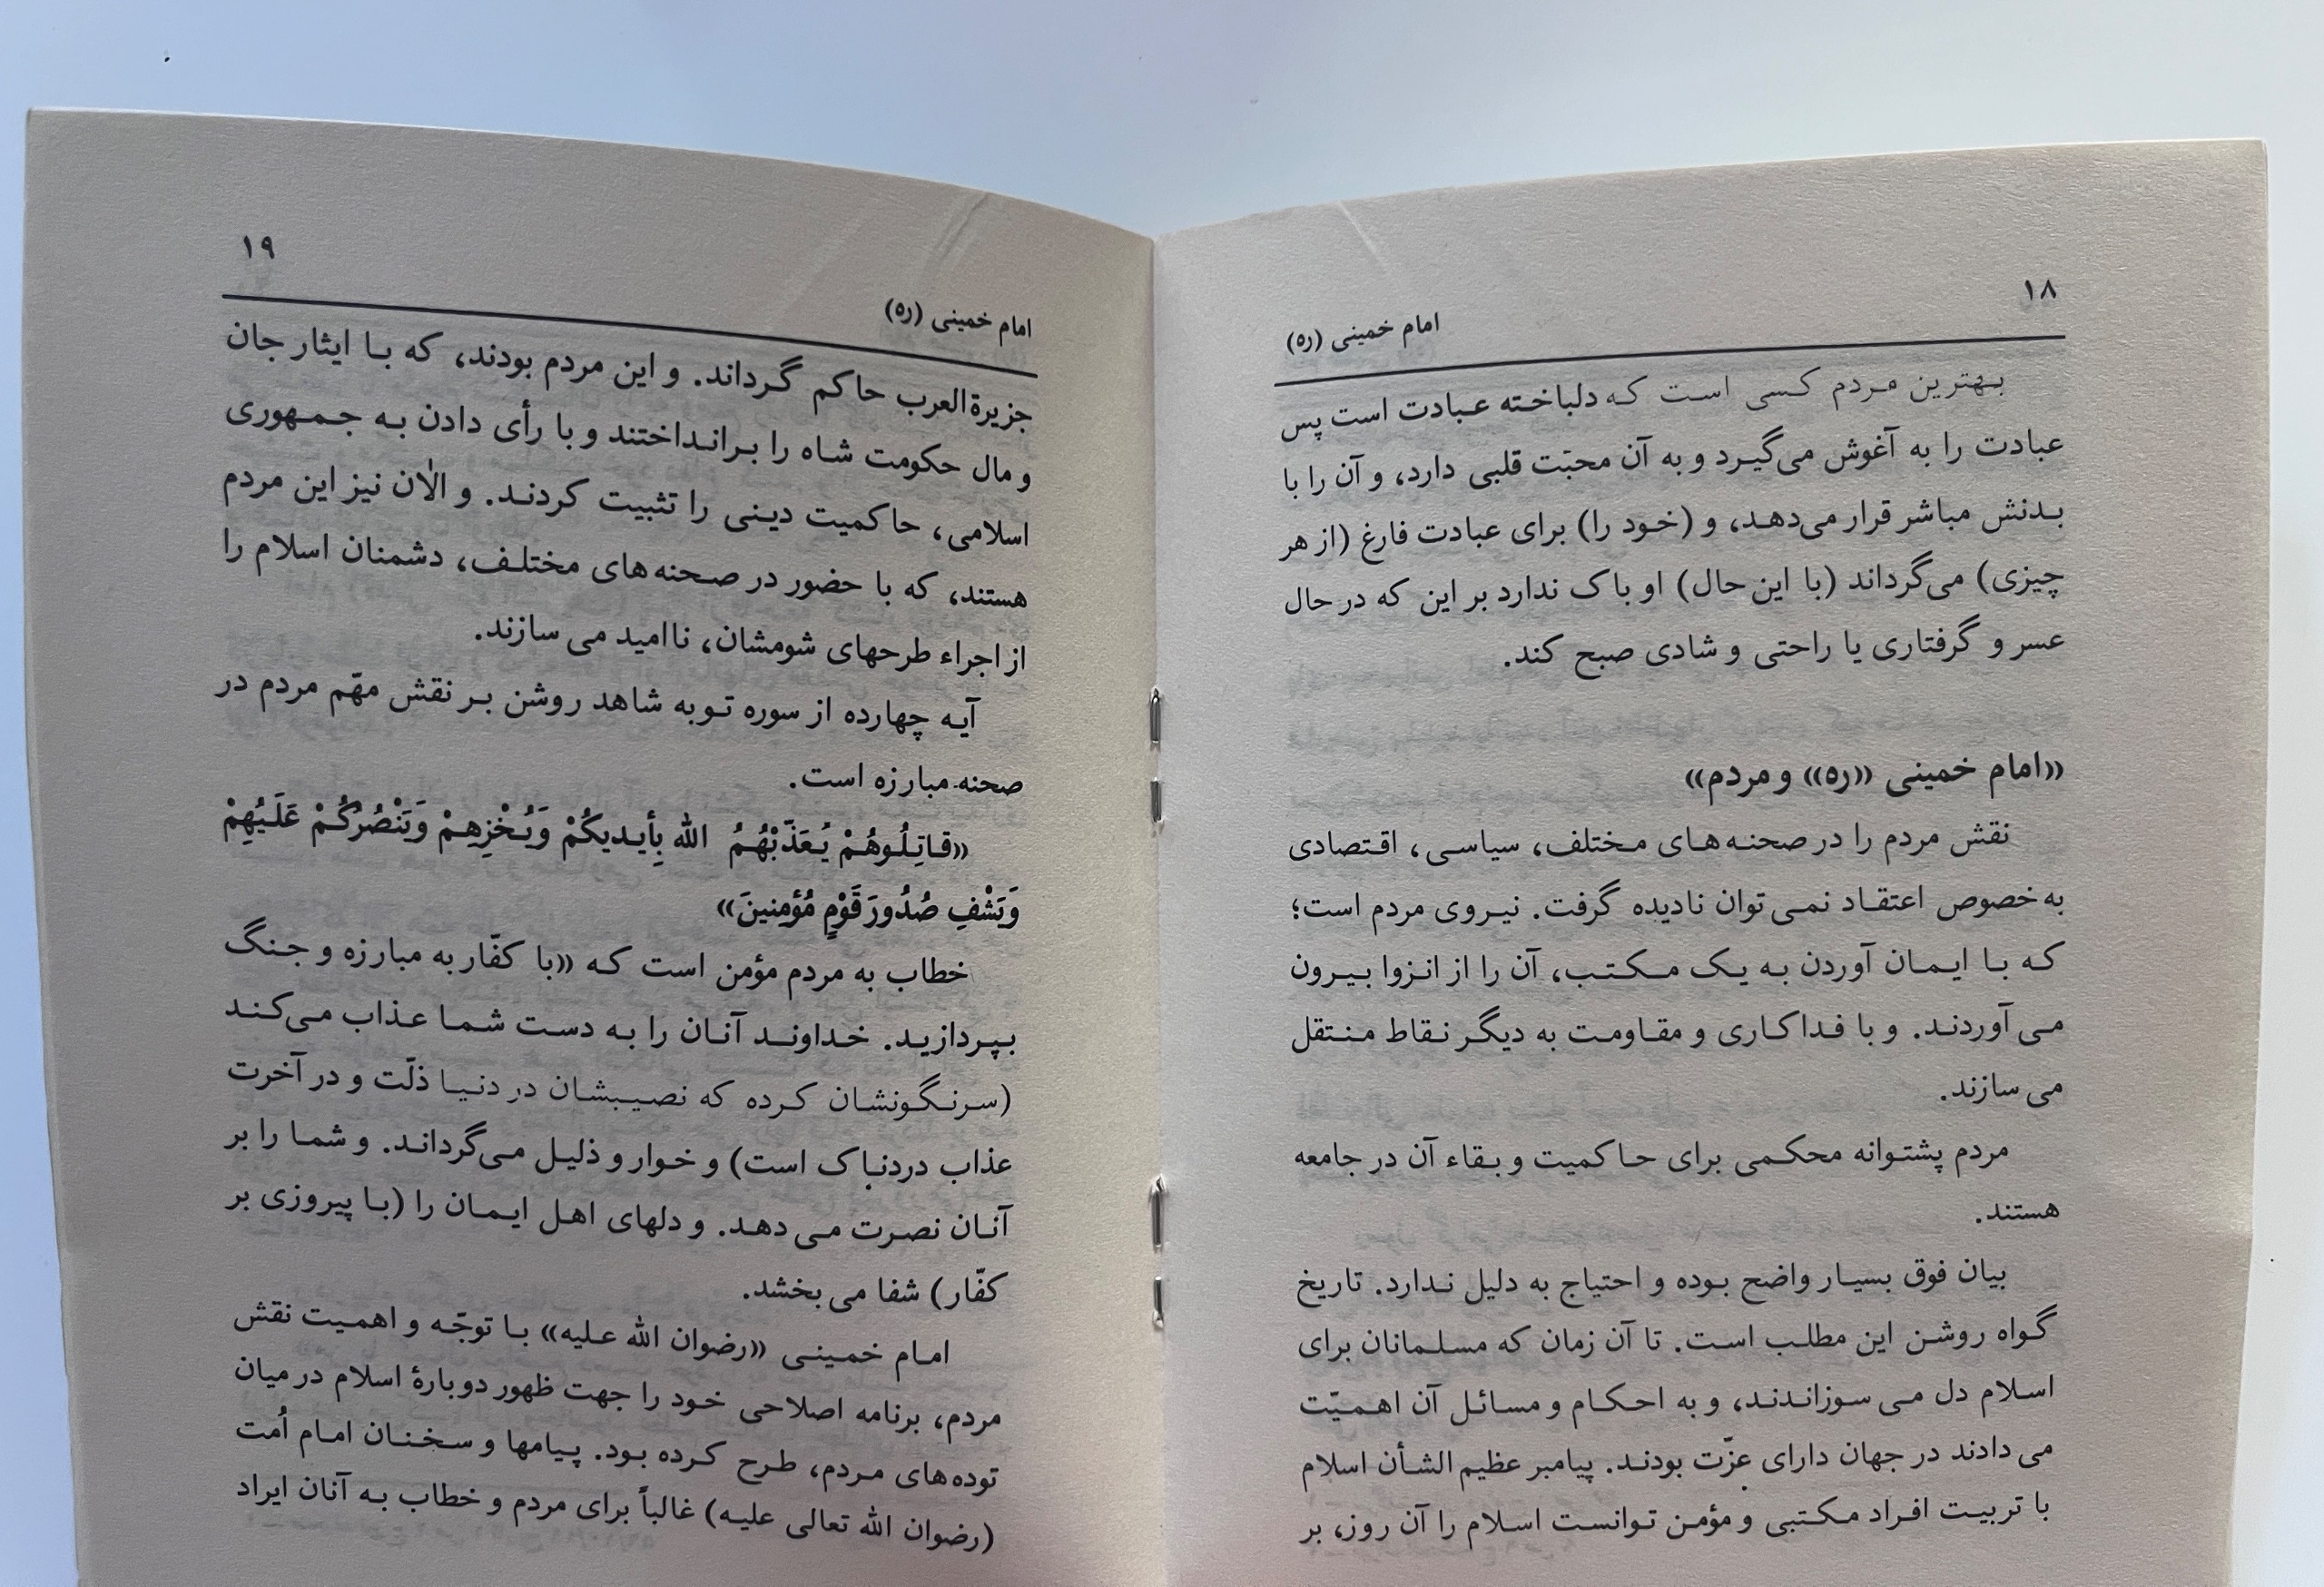 ۱۸
امام خمینی (ره)
بهترین مردم کسی است که دلباخته عبادت است پس
عبادت را به آغوش می‌گیرد و به آن محبّت قلبی دارد، و آن را با
بدنش مباشر قرار می‌دهد، و (خود را) برای عبادت فارغ (از هر
چیزی) می‌گرداند (با این حال) او باک ندارد بر این که در حال
عسر و گرفتاری یا راحتی و شادی صبح کند.
«امام خمینی «ره» و مردم»
نقش مردم را در صحنه‌های مختلف، سیاسی، اقتصادی
به خصوص اعتقاد نمی‌توان نادیده گرفت. نیروی مردم است؛
که با ایمان آوردن به یک مکتب، آن را از انزوا بیرون
می‌آوردند. و با فداکاری و مقاومت به دیگر نقاط منتقل
می‌سازند.
مردم پشتوانه محکمی برای حاکمیت و بقاء آن در جامعه
هستند.
بیان فوق بسیار واضح بوده و احتیاج به دلیل ندارد. تاریخ
گواه روشن این مطلب است. تا آن زمان که مسلمانان برای
اسلام دل می‌سوزاندند، و به احکام و مسائل آن اهمیّت
می‌دادند در جهان دارای عزّت بودند. پیامبر عظیم الشأن اسلام
با تربیت افراد مکتبی و مؤمن توانست اسلام را آن روز، بر
۱۹
امام خمینی (ره)
جزیرةالعرب حاکم گرداند. و این مردم بودند، که با ایثار جان
و مال حکومت شاه را برانداختند و با رأی دادن به جمهوری
اسلامی، حاکمیت دینی را تثبیت کردند. و الان نیز این مردم
هستند، که با حضور در صحنه‌های مختلف، دشمنان اسلام را
از اجراء طرحهای شومشان، ناامید می‌سازند.
آیه چهارده از سوره توبه شاهد روشن بر نقش مهّم مردم در
صحنه مبارزه است.
«قاتِلُوهُمْ یُعَذِّبْهُمُ الله بِأیدیکُمْ وَیُخْزِهِمْ وَیَنْصُرْکُمْ عَلَیْهِمْ
وَیَشْفِ صُدُورَ قَوْمٍ مُؤمِنینَ»
خطاب به مردم مؤمن است که «با کفّار به مبارزه و جنگ
بپردازید. خداوند آنان را به دست شما عذاب می‌کند
(سرنگونشان کرده که نصیبشان در دنیا ذلّت و در آخرت
عذاب دردناک است) و خوار و ذلیل می‌گرداند. و شما را بر
آنان نصرت می‌دهد. و دلهای اهل ایمان را (با پیروزی بر
کفّار) شفا می‌بخشد.
امام خمینی «رضوان الله علیه» با توجّه و اهمیت نقش
مردم، برنامه اصلاحی خود را جهت ظهور دوبارهٔ اسلام در میان
توده‌های مردم، طرح کرده بود. پیامها و سخنان امام اُمت
(رضوان الله تعالی علیه) غالباً برای مردم و خطاب به آنان ایراد